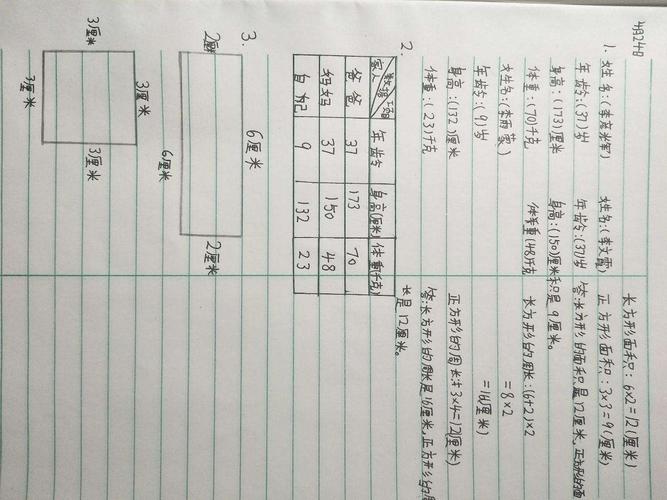 4月24日
1. 姓名:(李彦军)
年龄:(37)岁
身高:(173)厘米
体重:(70)千克
姓名:(李雨蒙)
年龄:(9)岁
身高:(132)厘米
体重:(23)千克
姓名:(李文霞)
年龄:(37)岁
身高:(150)厘米
体重(48)千克
2.
数据 项目 家人 年龄 身高(厘米) 体重(千克)
爸爸 37 173 70
妈妈 37 150 48
自己 9 132 23
3.
6厘米
2厘米
2厘米
6厘米
3厘米
3厘米
3厘米
3厘米
长方形面积: 6×2=12(厘米)
正方形面积: 3×3=9(厘米)
答:长方形的面积是12厘米,正方形的面
积是9厘米。
长方形的周长:(6+2)×2
=8×2
=16(厘米)
正方形的周长: 3×4=12(厘米)
答:长方形的周长是16厘米,正方形的周
长是12厘米。